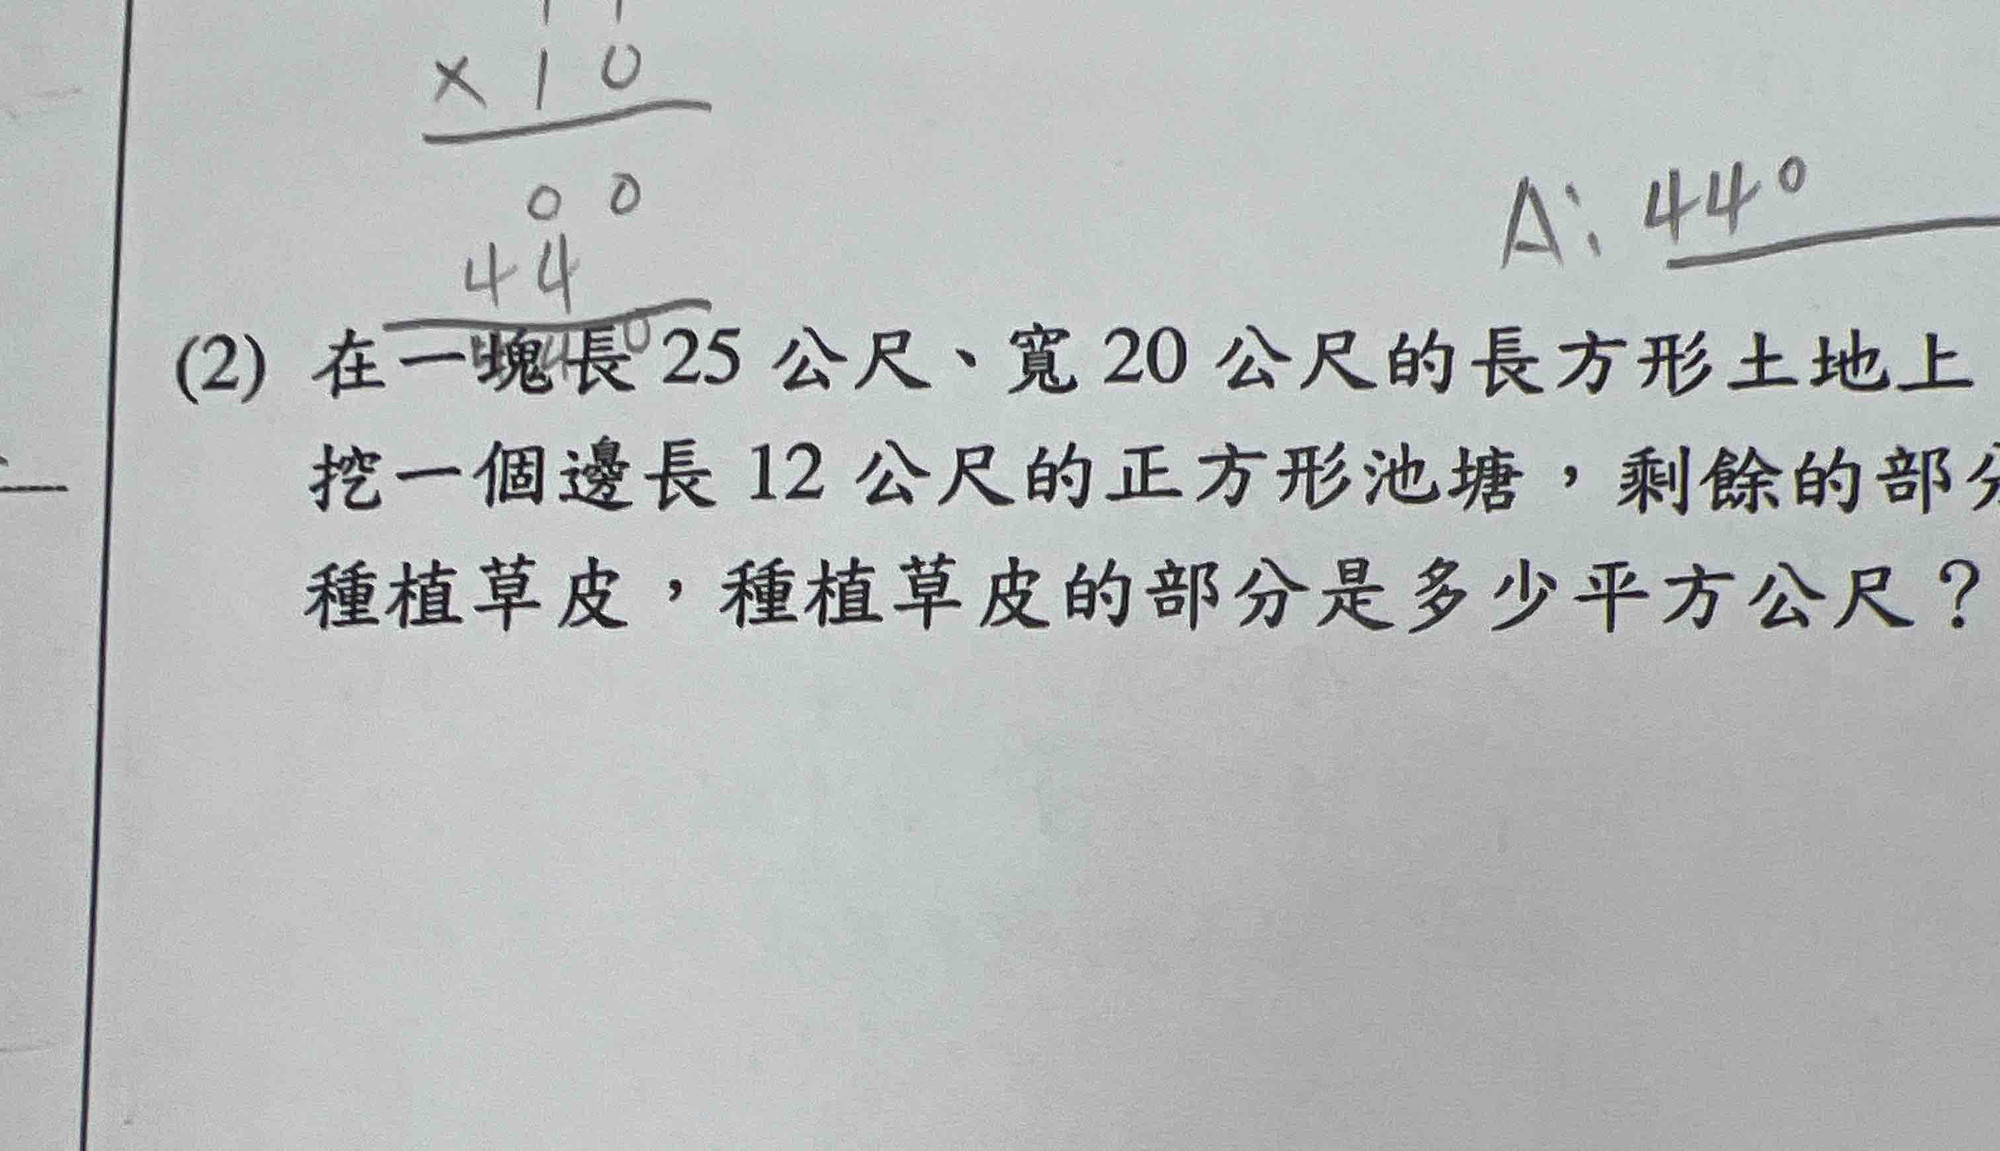 × 1 0
0 0
4 4
A: 440
(2) 在一塊長 25 公尺、寬 20 公尺的長方形土地上
挖一個邊長 12 公尺的正方形池塘，剩餘的部分
種植草皮，種植草皮的部分是多少平方公尺？